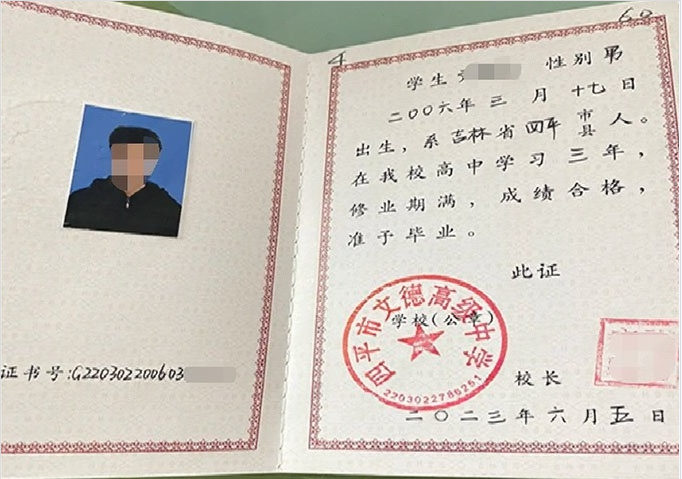 证书号:G220302200603
4
60
学生 性别 男
二〇〇六年 三 月 十七 日
出生，系 吉林 省 四平 市县 人。
在我校高中学习 三 年，
修业期满，成绩合格，
准予毕业。
此证
四平市文德高级中学
学校(公章)
2203022786251
校长
二〇二三年 六 月 五 日